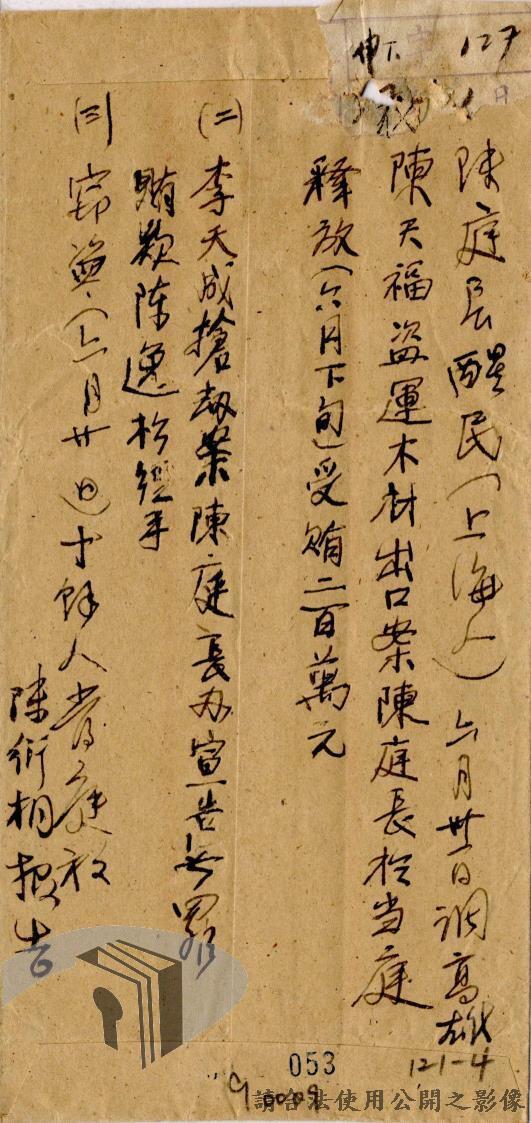 127
陳庭長醒民(上海人)六月廿日調高雄
陳天福盜運木材出口案陳庭長於当庭
釋放(六月下旬)受賄二百萬元
(二)李天成搶劫案陳庭長办宣告無罪
賄款陈逸松經手
(三)竊盜(六月廿日)十餘人當庭放
陳衍相報告
053
121-4
請合法使用公開之影像